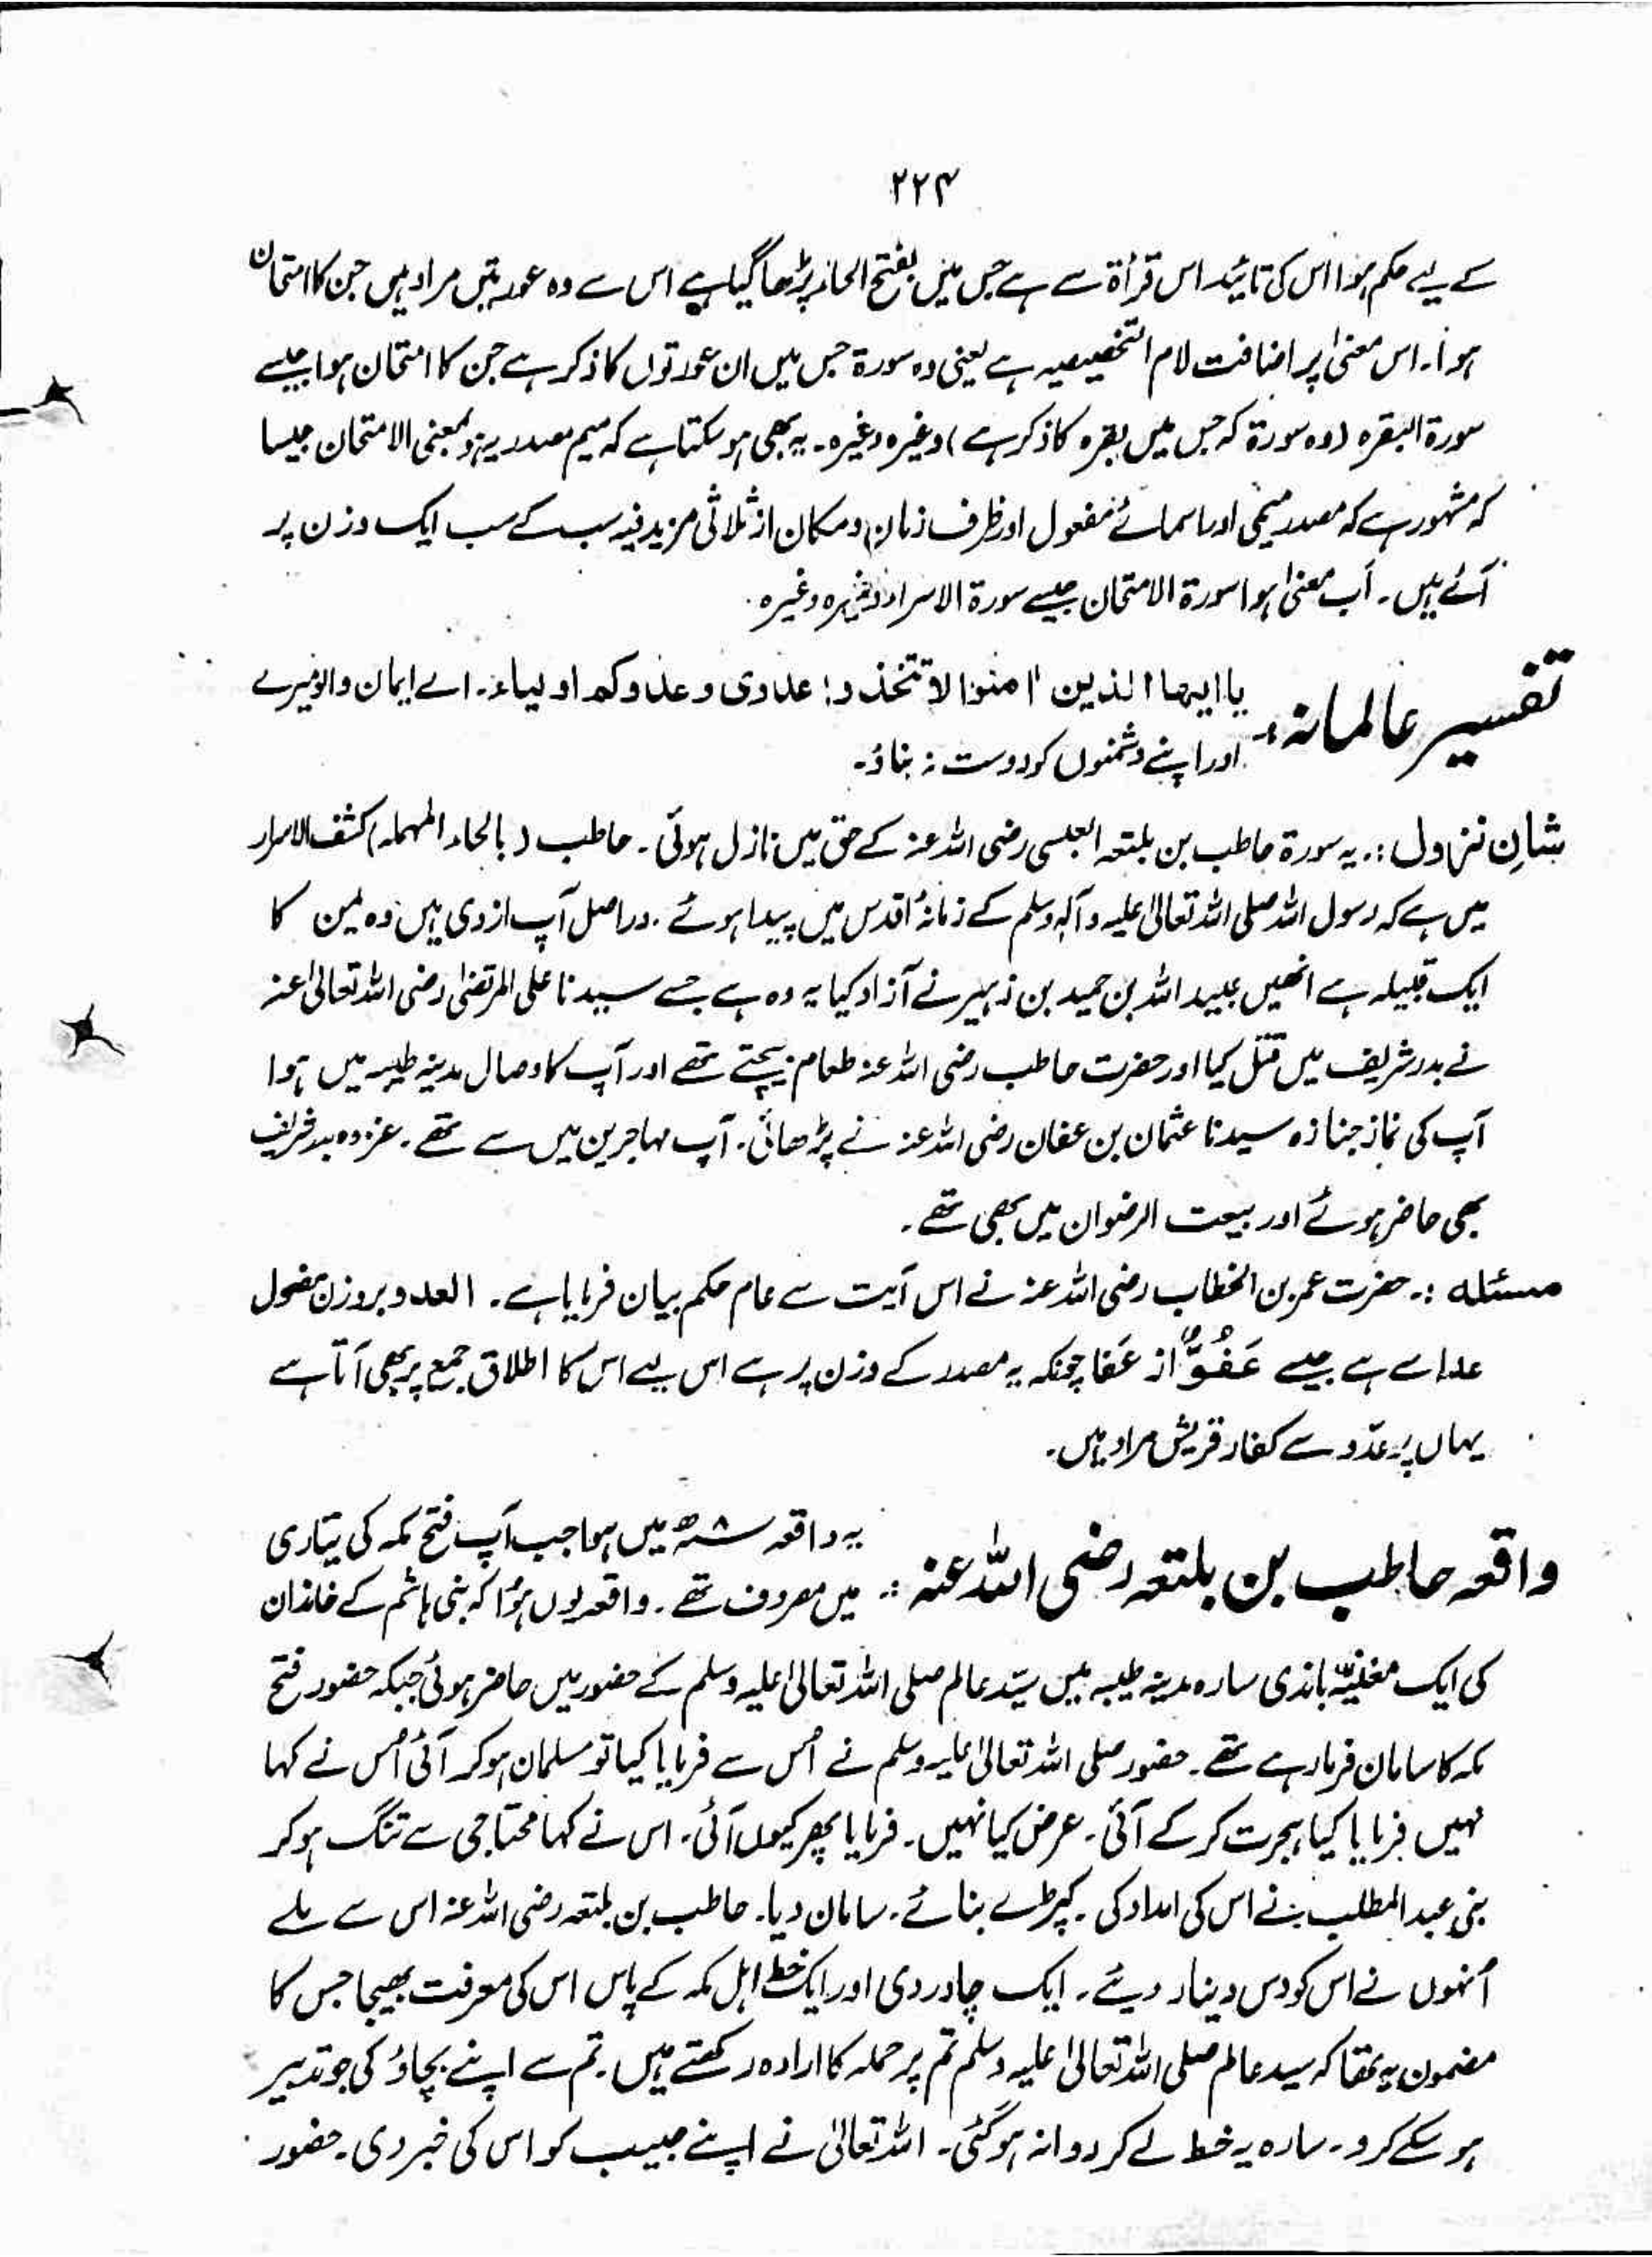 ۲۲۴
کے لیے حکم ہوا اس کی تائید اس قرأۃ سے ہے جس میں بفتح الحاء پڑھا گیا ہے اس سے وہ عورتیں مراد ہیں جن کا امتحان
ہوا۔ اس معنیٰ پر اضافت لام التخصیصیہ ہے یعنی وہ سورۃ جس میں ان عورتوں کا ذکر ہے جن کا امتحان ہوا جیسے
سورۃ البقرہ (وہ سورۃ کہ جس میں بقرہ کا ذکر ہے) وغیرہ وغیرہ۔ یہ بھی ہو سکتا ہے کہ میم مصدریہ ہو بمعنی الامتحان جیسا
کہ مشہور ہے کہ مصدر میمی اور اسمائے مفعول اور ظرف زمان و مکان از ثلاثی مزید فیہ سب کے سب ایک وزن پر
آئے ہیں۔ اب معنیٰ ہوا سورۃ الامتحان جیسے سورۃ الاسراء وغیرہ وغیرہ۔
تفسیر عالمانہ:۔ یا ایھا الذین اٰمنوا لا تتخذوا عدوی و عدوکم اولیاء۔ اے ایمان والو میرے
اور اپنے دشمنوں کو دوست نہ بناؤ۔
شانِ نزول:۔ یہ سورۃ حاطب بن بلتعہ العبسی رضی اللہ عنہ کے حق میں نازل ہوئی۔ حاطب (بالحاء المہملہ) کشف الاسرار
میں ہے کہ رسول اللہ صلی اللہ تعالیٰ علیہ وآلہٖ وسلم کے زمانۂ اقدس میں پیدا ہوئے۔ دراصل آپ ازدی ہیں وہ یمن کا
ایک قبیلہ ہے انھیں عبید اللہ بن حمید بن زہیر نے آزاد کیا یہ وہ ہے جسے سیدنا علی المرتضیٰ رضی اللہ تعالیٰ عنہ
نے بدر شریف میں قتل کیا اور حضرت حاطب رضی اللہ عنہ طعام بیچتے تھے اور آپ کا وصال مدینہ طیبہ میں ہوا
آپ کی نماز جنازہ سیدنا عثمان بن عفان رضی اللہ عنہ نے پڑھائی۔ آپ مہاجرین میں سے تھے۔ غزوہ بدر شریف
بھی حاضر ہوئے اور بیعت الرضوان میں بھی تھے۔
مسئلہ:۔ حضرت عمر بن الخطاب رضی اللہ عنہ نے اس آیت سے عام حکم بیان فرمایا ہے۔ العدو بروزن فعول
عدا سے ہے جیسے عَفُوٌّ از عَفا چونکہ یہ مصدر کے وزن پر ہے اس لیے اس کا اطلاق جمع پر بھی آتا ہے
یہاں پر عدّو سے کفار قریش مراد ہیں۔
واقعہ حاطب بن بلتعہ رضی اللہ عنہ:۔ یہ واقعہ ۸ھ میں ہوا جب آپ فتح مکہ کی تیاری
میں مصروف تھے۔ واقعہ یوں ہوا کہ بنی ہاشم کے خاندان
کی ایک مغنیہ باندی سارہ مدینہ طیبہ میں سیّد عالم صلی اللہ تعالیٰ علیہ وسلم کے حضور میں حاضر ہوئی جبکہ حضور فتح
مکہ کا سامان فرما رہے تھے۔ حضور صلی اللہ تعالیٰ علیہ وسلم نے اُس سے فرمایا کیا تو مسلمان ہو کر آئی اُس نے کہا
نہیں فرمایا کیا ہجرت کر کے آئی۔ عرض کیا نہیں۔ فرمایا پھر کیوں آئی۔ اس نے کہا محتاجی سے تنگ ہو کر
بنی عبد المطلب نے اس کی امداد کی۔ کپڑے بنائے۔ سامان دیا۔ حاطب بن بلتعہ رضی اللہ عنہ اس سے ملے
اُنہوں نے اس کو دس دینار دیئے۔ ایک چادر دی اور ایک خط اہل مکہ کے پاس اس کی معرفت بھیجا جس کا
مضمون یہ تھا کہ سید عالم صلی اللہ تعالیٰ علیہ وسلم تم پر حملہ کا ارادہ رکھتے ہیں۔ تم سے اپنے بچاؤ کی جو تدبیر
ہو سکے کرو۔ سارہ یہ خط لے کر روانہ ہو گئی۔ اللہ تعالیٰ نے اپنے حبیب کو اس کی خبر دی۔ حضور